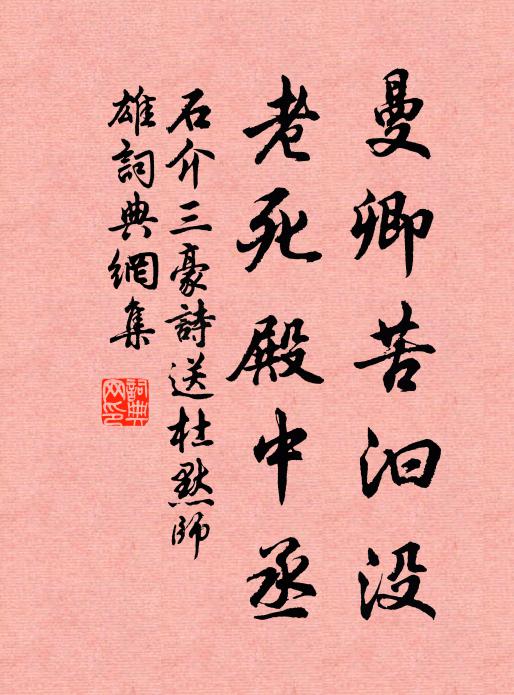 曼卿苦汩没
老死殿中丞
石介三豪詩送杜默師
雄詞典網集
詞典
网印